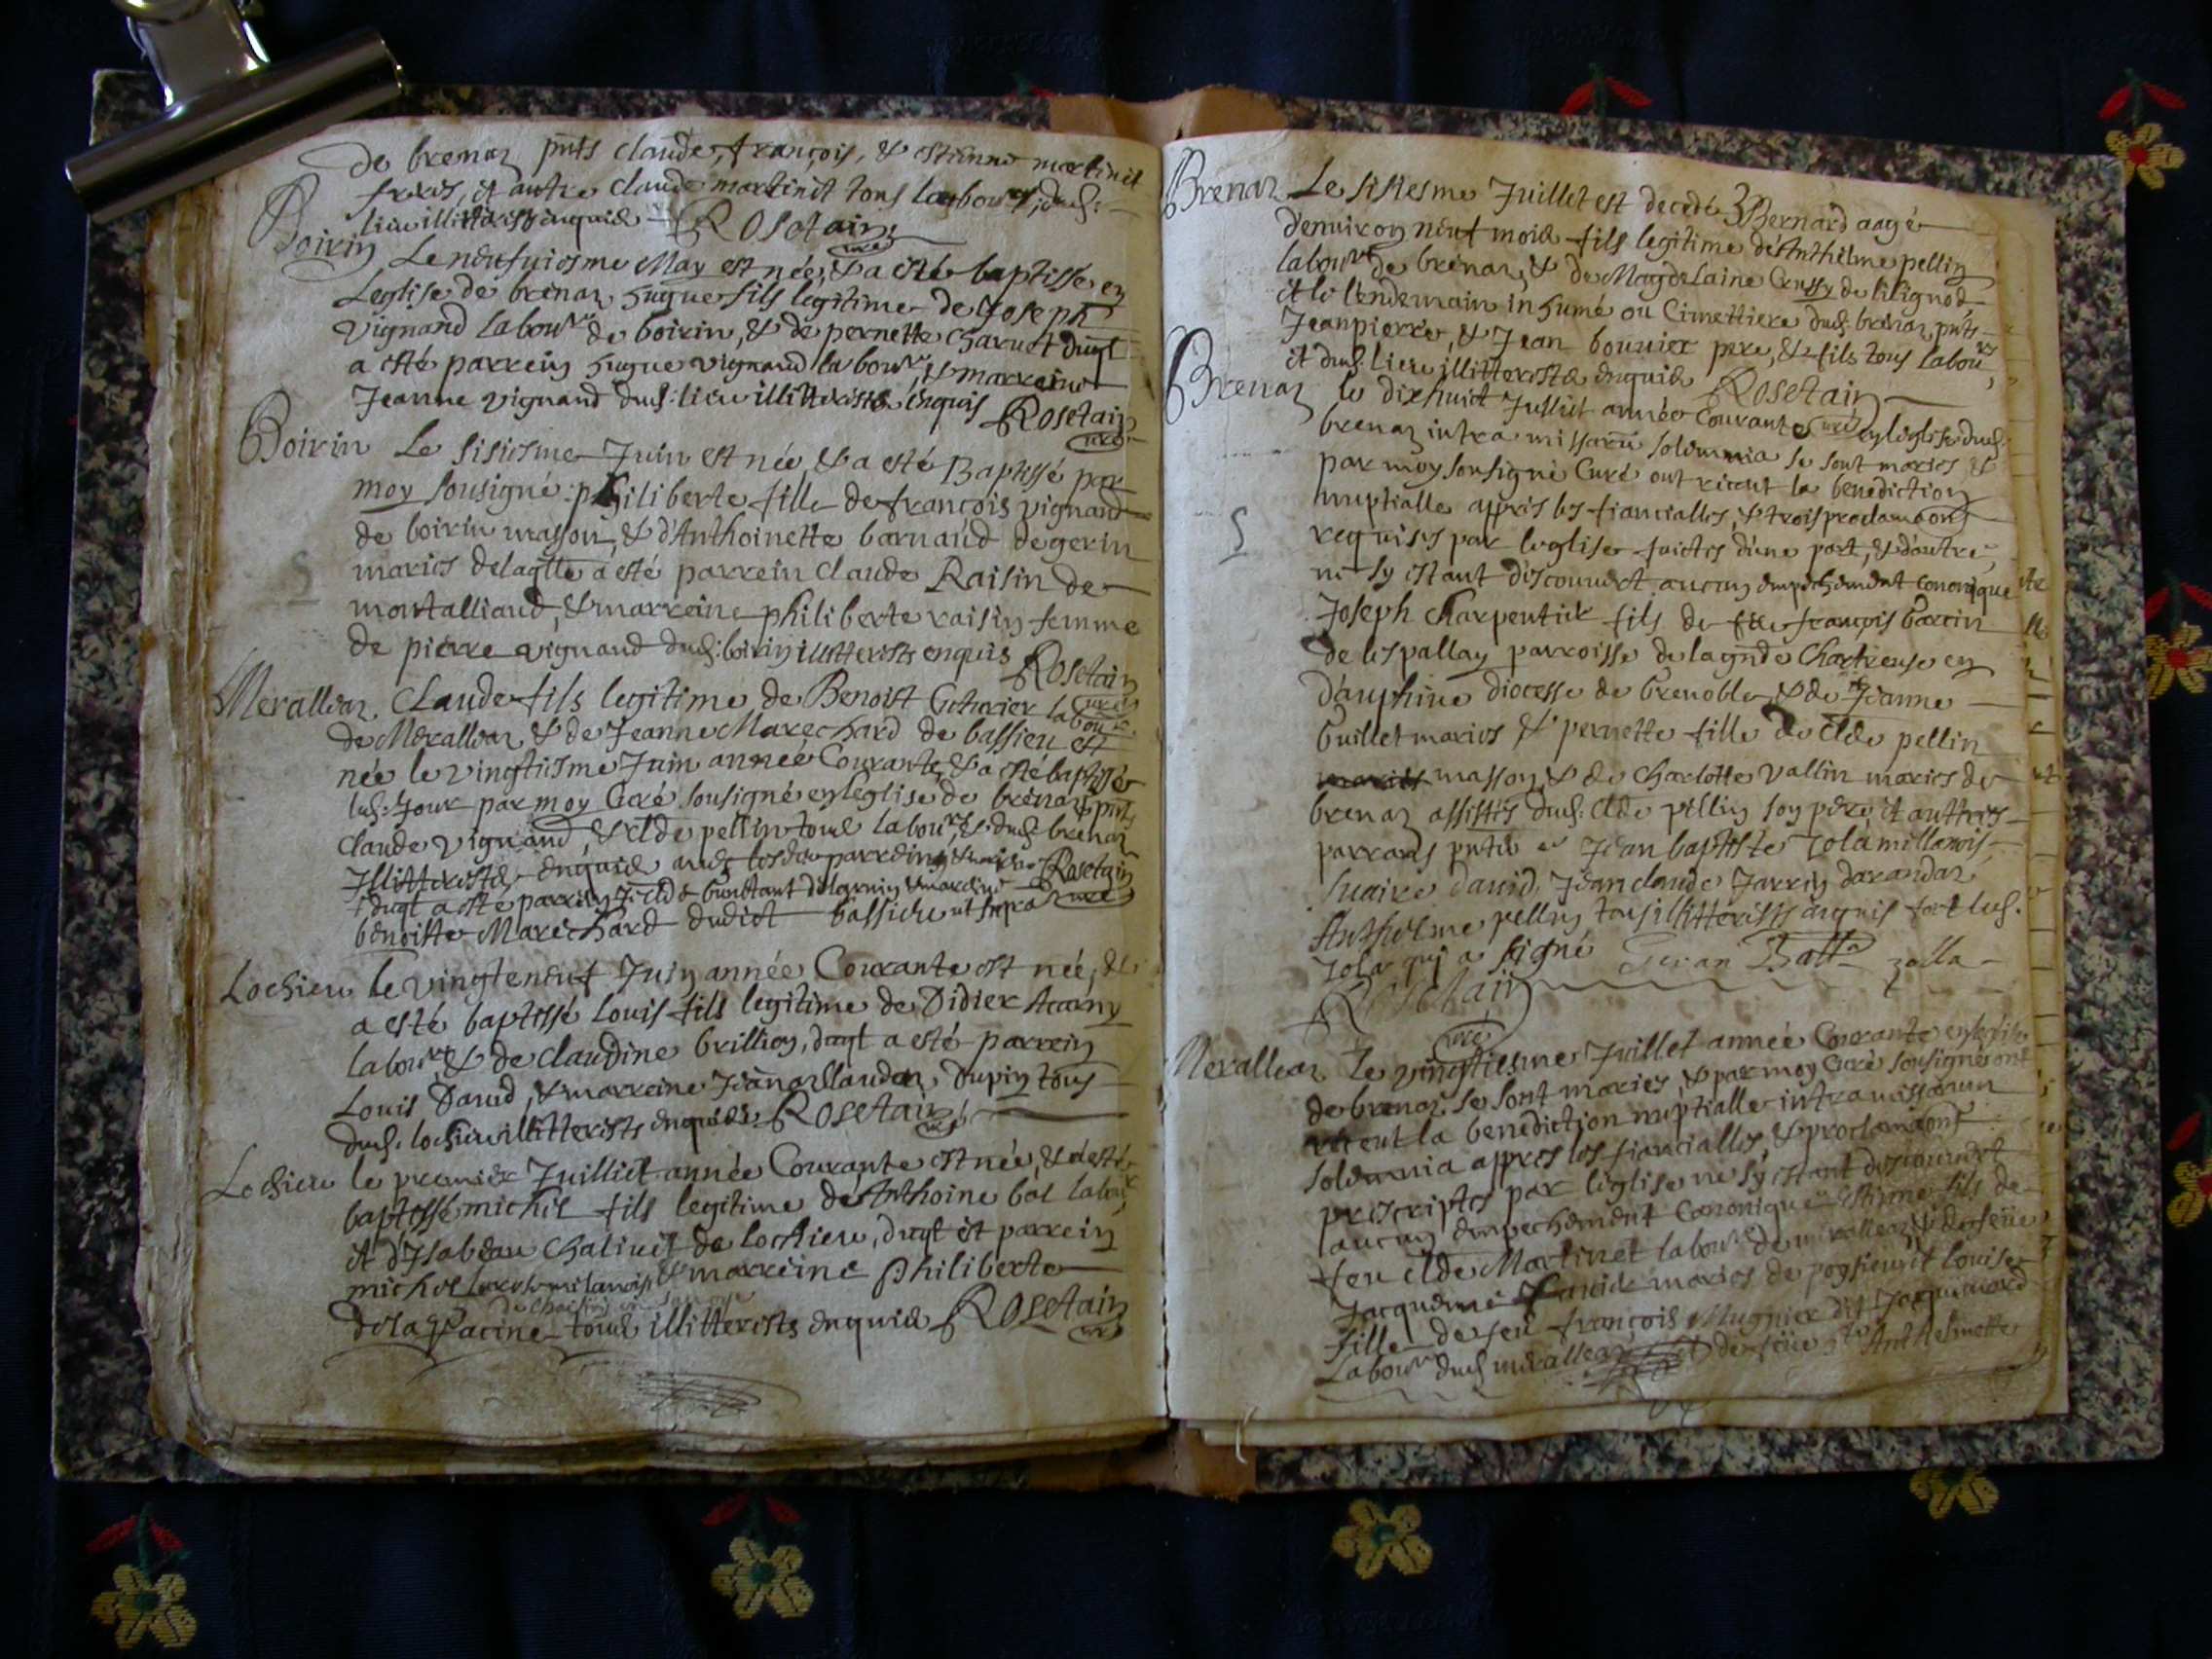 de brenaz pnts claude, françois, & estienne martinet
freres, et autre claude martinet tous labours, dud:
lieu illitterists enquis Rosetain
curé
Boirin Le neufuiesme May est née, & a esté baptissé en
Leglise de brenaz hugue fils legitime de Joseph
vignand labour de boirin, & de pernette charuet duqt
a esté parrein hugue vignand labour, & marreine
Jeanne vignand dud: lieu illitterists enquis Rosetain
curé
Boirin Le sisiesme Juin est née, & a esté Baptissé par
moy sousigné philiberte fille de françois vignand
de boirin masson, & d'Anthoinette barnaud de gerin
maries delaqlle a esté parrein claude Raisin de
montalliand, & marreine philiberte raisin femme
de pierre vignand dud: boirin illitterists enquis Rosetain
curé
Meralleaz. Claude fils legitime de Benoist labour
de Meralleaz & de Jeanne Marechard de bassieu est
née le vingtiesme Juin année Courante, & a esté baptissé
led: Jour par moy Curé sousigné en leglise de brenaz pnts
claude vignand, & clde pellin tous labours, & dud: brenaz
Illitterists enquis Rosetain
duqt a esté parrein clde & marreine
benoiste Marechard dudict bassieu ut supra curé
Lochieu Le vingteneuf Juin année Courante est née, &
a esté baptissé Louis fils legitime de Didier Acarny
labour, & de claudine brillion, duqt a esté parrein
Louis David, & marreine Dupin tous
dud: lochieu illitterists enquis. Rosetain
curé
Lochieu le premier Juilliet année Courante est née, & a esté
baptissé michel fils legitime de Anthoine bal labour
et d'Isabeau Chalinet de lochieu, duqt est parrein
michel & marreine philiberte
delagracine tous illitterists enquis Rosetain
curé
Brenaz Le sisiesme Juillet est decedé Bernard aagé
denuiron neuf mois fils legitime d'Anthelme pellin
labour de brenaz, & de Magdelaine Crussy de lilignod
et le lendemain inhumé au Cimettiere dud: brenaz, pnts
Jeanpierre, & Jean bouuier pere, & fils tous labours
et dud: lieu illitterists enquis Rosetain
curé
Brenaz le dixhuict Juillet année Courante en leglise dud:
brenaz intra missarū solemnia se sont maries &
par moy sousigné Curé ont receut la benediction
nuptialle appres les fiancialles, & trois proclamaons
requises par leglise faictes d'une part, & d'autre,
ne sy estant descouuert aucun empechement canonique
Joseph Charpentier fils de françois Garcin
de lespallay parroisse de lagnde Chartreuse en
Dauphine diocesse de Grenoble & de Jeanne
Guillet maries & pernette fille de clde pellin
masson, & de Charlotte vallin maries de
brenaz assistes dud: clde pellin son pere, et authres
parrans Jean baptiste Jola millanois
Jeanclaude Jarrin
Anthelme pellin tous illitterists fort led.
Jola qui a signé Batta zolla
Rosetain
curé
Meralleaz Le vingtiesme Juillet année Courante en leglise
de brenaz se sont maries, & par moy Curé sousigné ont
receut la benediction nuptialle intra missarum
solemnia appres les fiancialles, & proclamaons
prescriptes par leglise ne sy estant descouuert
aucun empechement Canonique Estienne fils de
feu clde Martinet labour de meralleaz & de feüe
Jacqueme maries de pogsieu, et louise
fille de feu françois Mugnier dit Jacquinard
Labour dud: meralleaz et de feüe Anthelmette